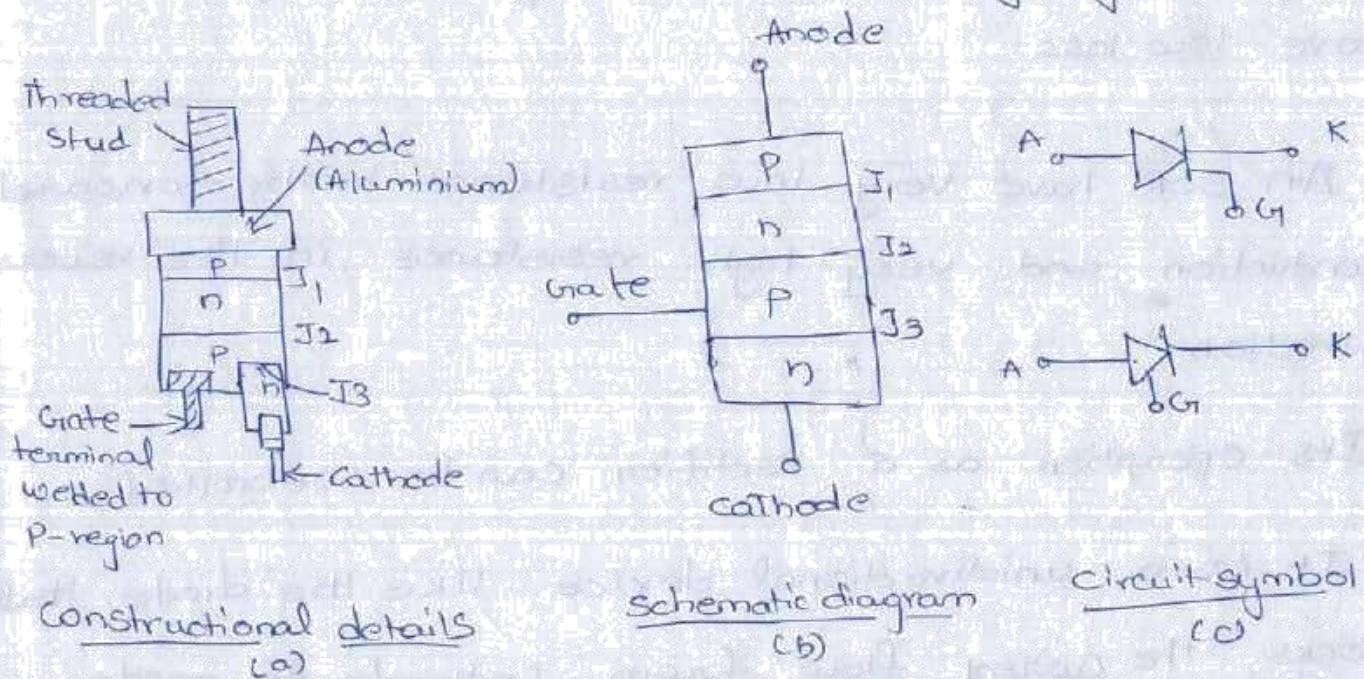 Threaded
Stud
Anode
(Aluminium)
P
J1
n
J2
P
n
J3
Gate
terminal
welded to
P-region
Cathode
Constructional details
(a)
Anode
P
J1
n
J2
Gate
P
J3
n
Cathode
Schematic diagram
(b)
A
K
G
A
K
G
Circuit symbol
(c)